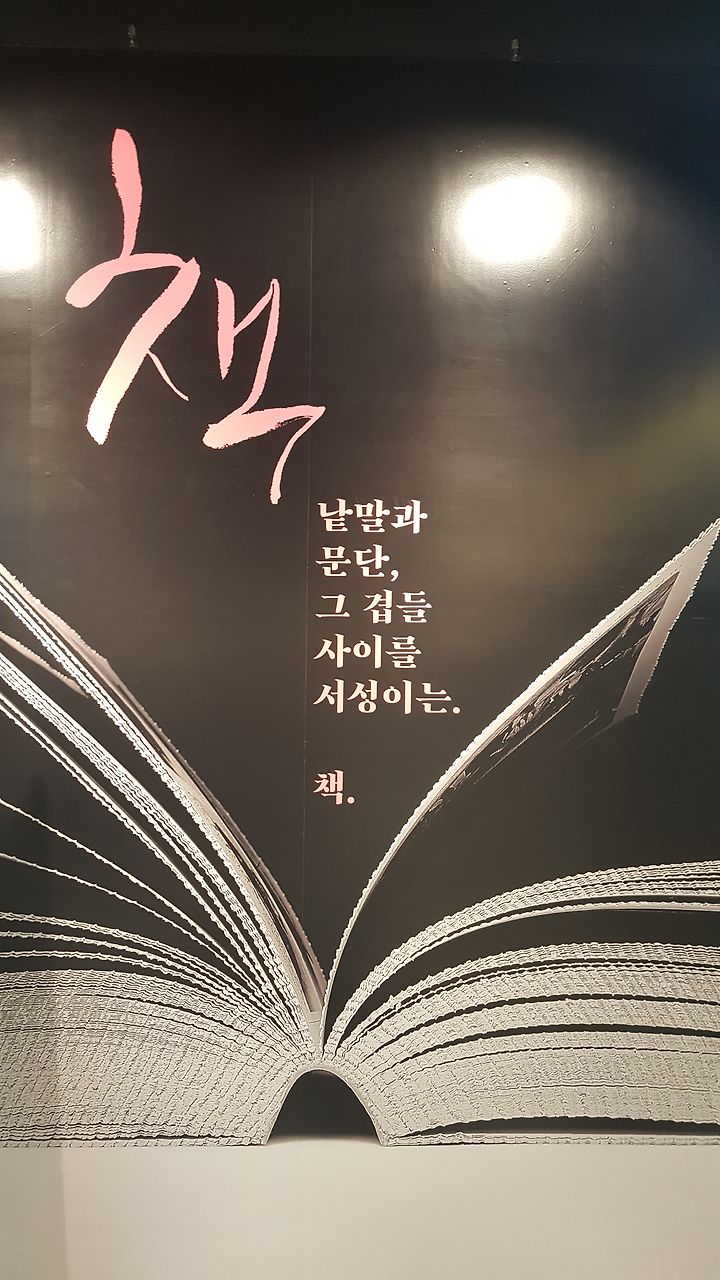 책
낱말과
문단,
그 겹들
사이를
서성이는.
책.